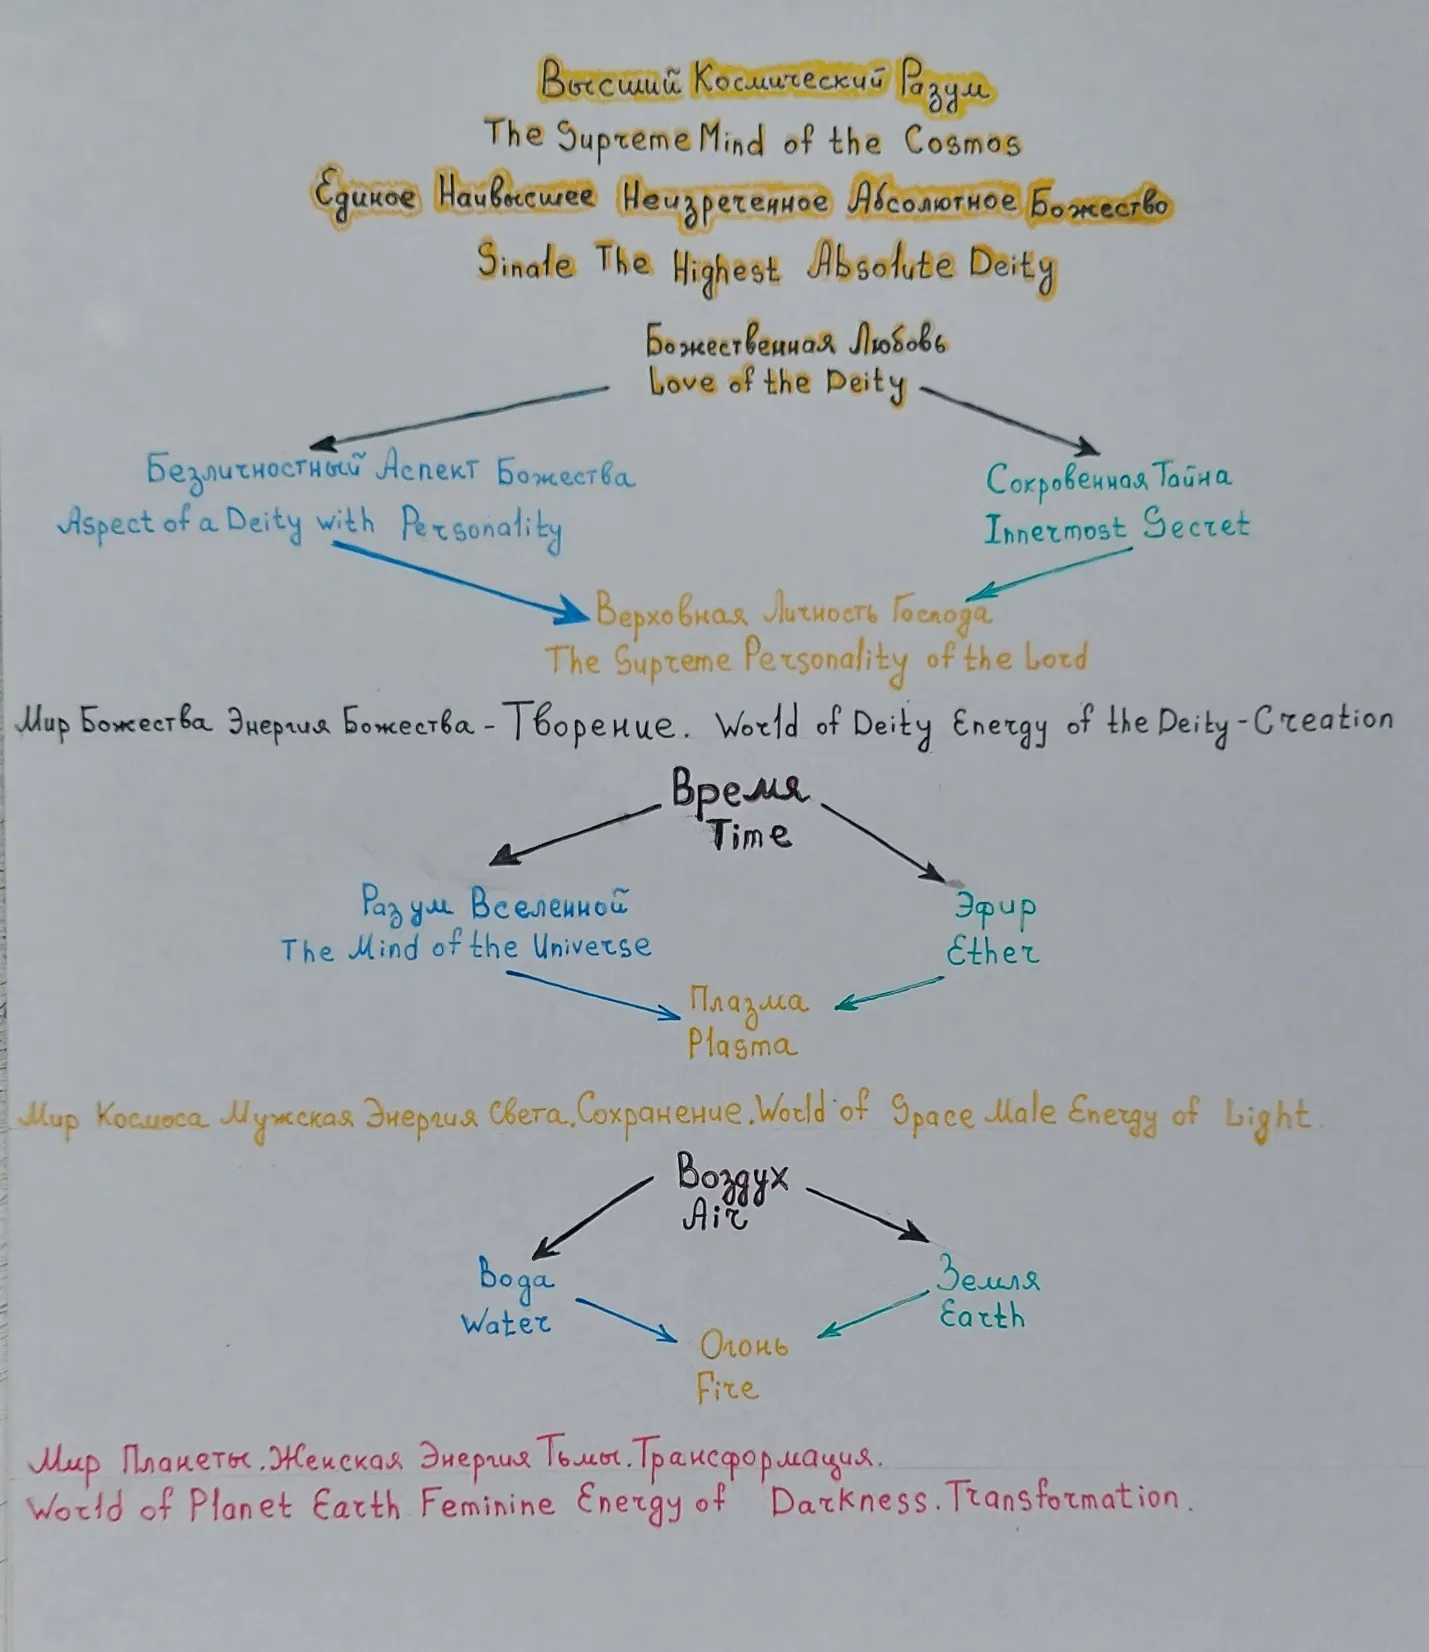 Высший Космический Разум
The Supreme Mind of the Cosmos
Единое Наивысшее Неизреченное Абсолютное Божество
Sinale The Highest Absolute Deity
Божественная Любовь
Love of the Deity
Безличностный Аспект Божества
Aspect of a Deity with Personality
Сокровенная Тайна
Innermost Secret
Верховная Личность Господа
The Supreme Personality of the Lord
Мир Божества Энергия Божества - Творение. World of Deity Energy of the Deity - Creation
Время
Time
Разум Вселенной
The Mind of the Universe
Эфир
Ether
Плазма
Plasma
Мир Космоса Мужская Энергия Света. Сохранение. World of Space Male Energy of Light.
Воздух
Air
Вода
Water
Земля
Earth
Огонь
Fire
Мир Планеты. Женская Энергия Тьмы. Трансформация.
World of Planet Earth Feminine Energy of Darkness. Transformation.